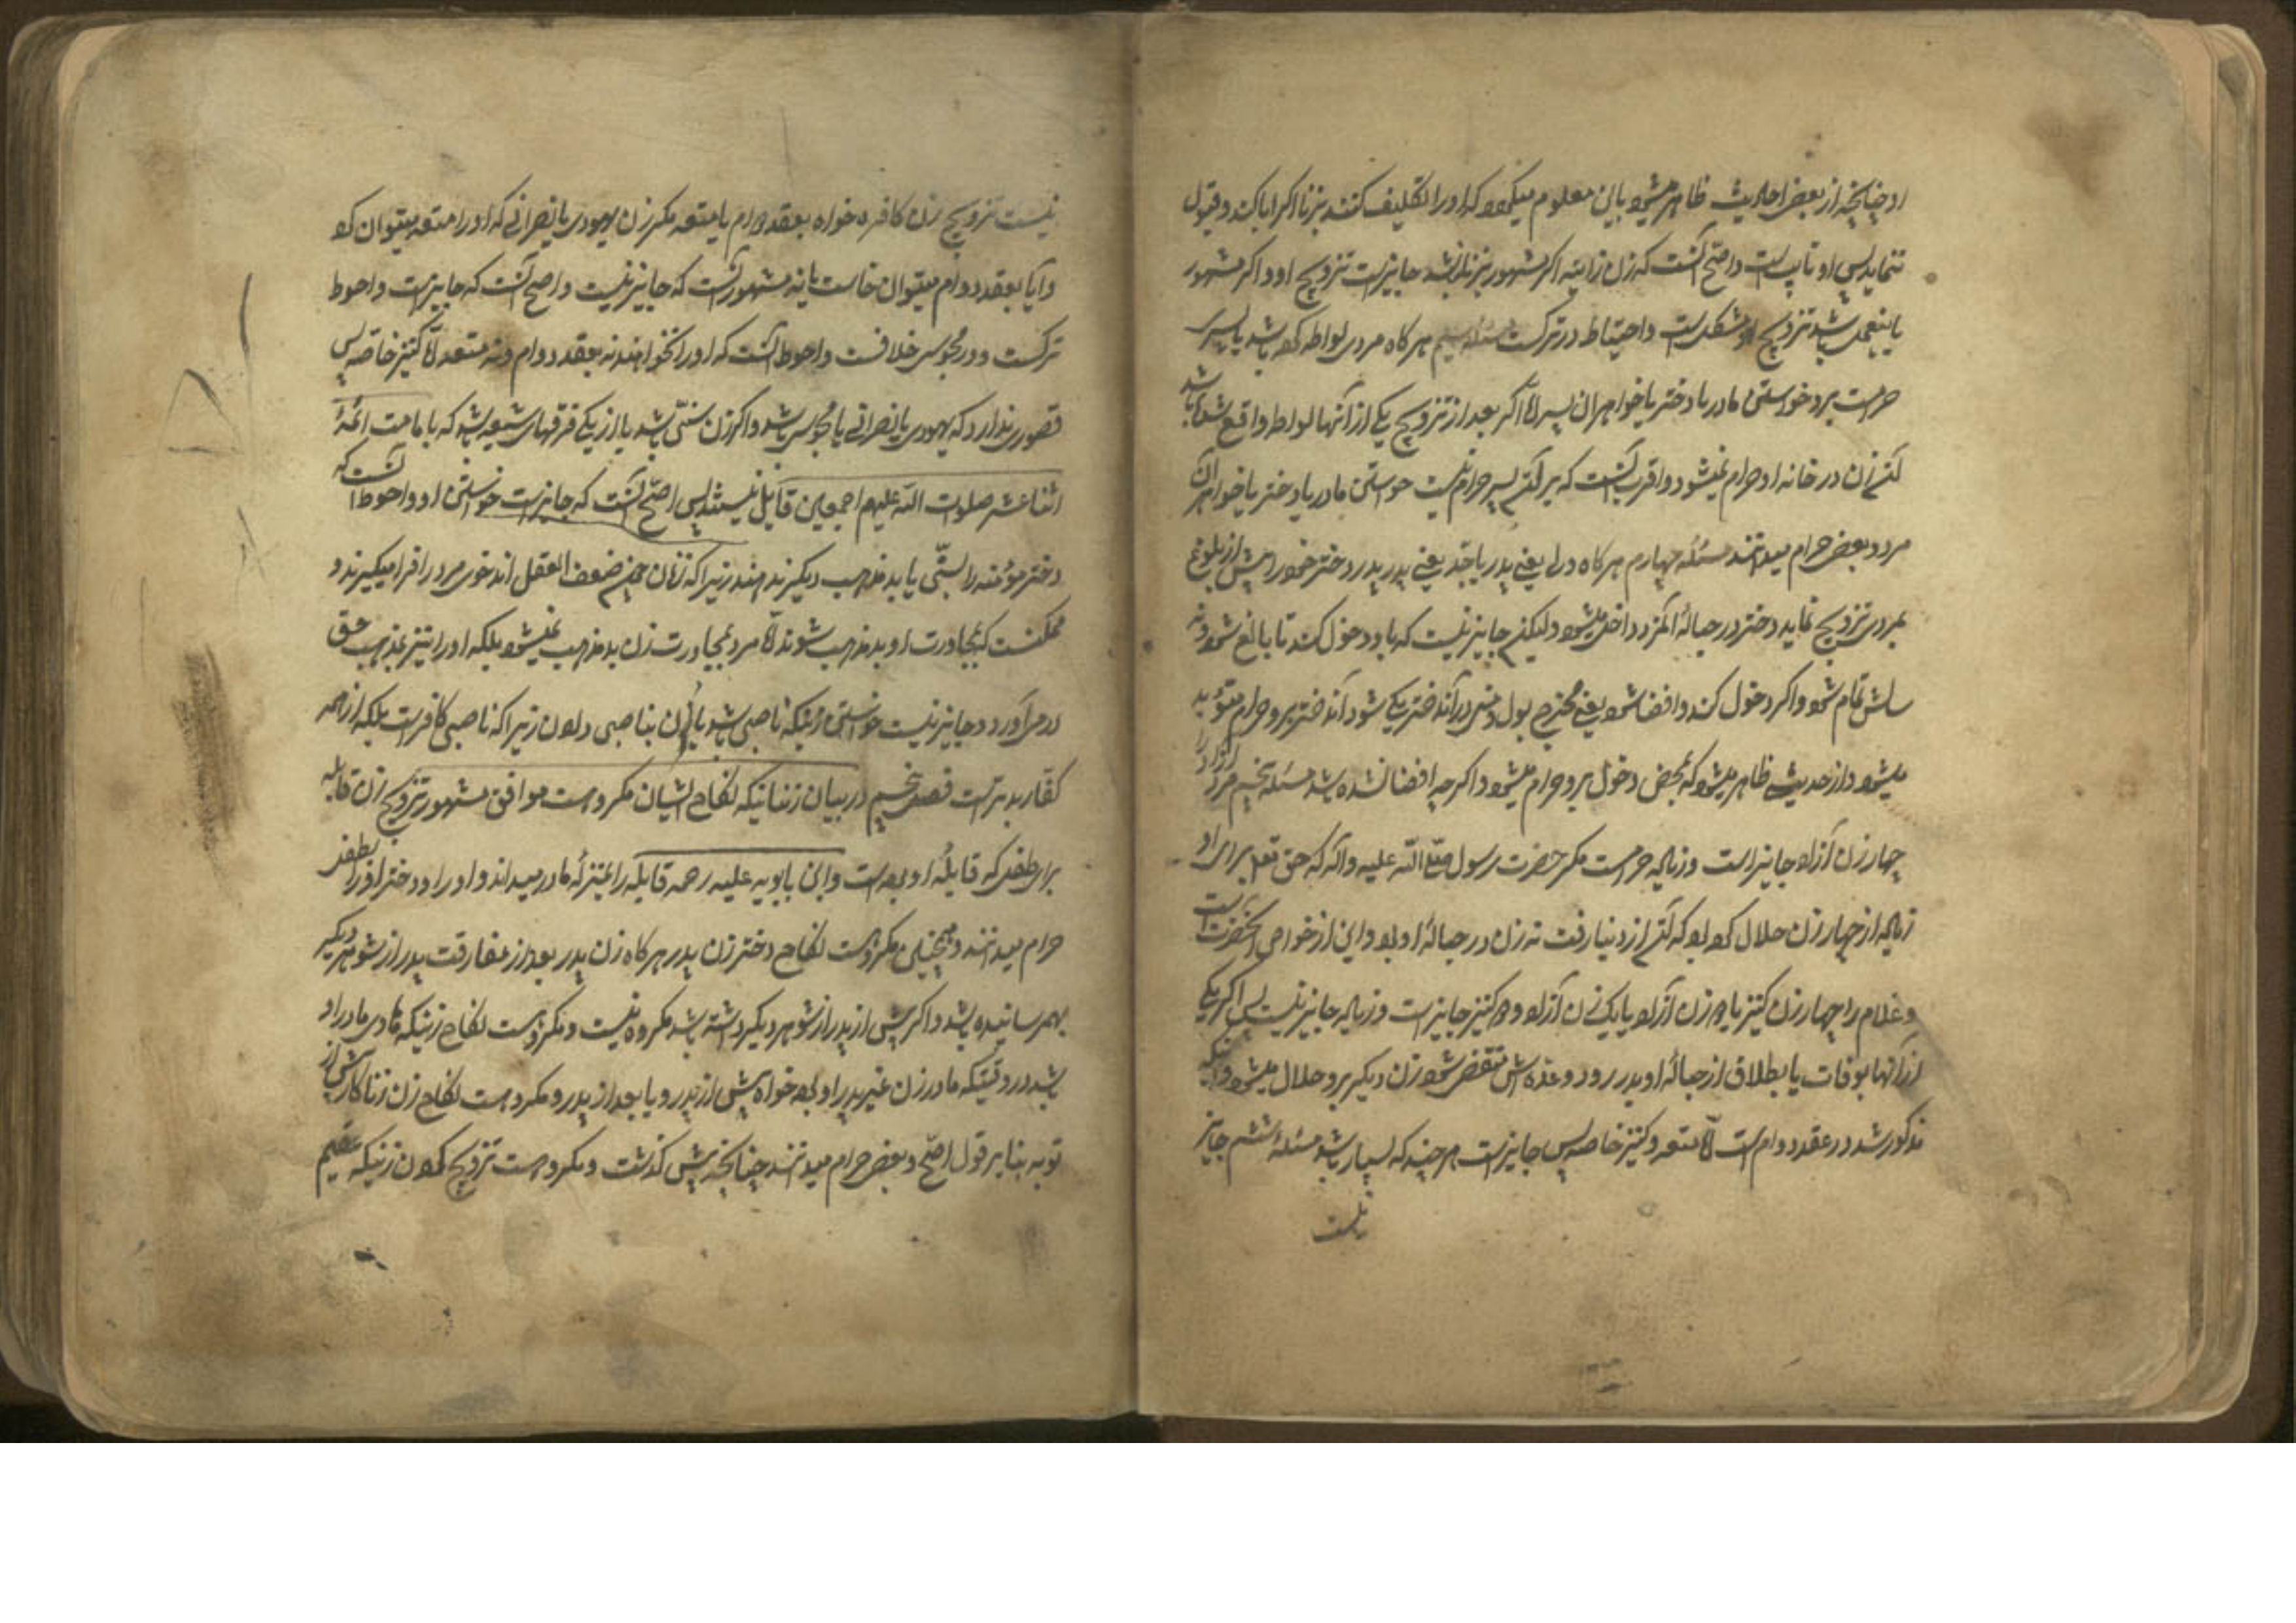 او چنانچه از بعض احادیث ظاهر میشود باین معلوم میگردد که او را تکلیف کنند بزنا اگر ابا کند و قبول
ننماید پس او تایب است و اصح آنست که زن زانیه اگر مشهور بزنا نباشد جایز است تزویج او و اگر مشهور
باینعمل باشد تزویج او مشکلست و احتیاط در ترکست مسئله سیم هر گاه مردی لواطه کرده باشد با پسری
حرامست برو خواستن مادر یا دختر یا خواهر آن پسر امّا اگر بعد از تزویج یکی از آنها لواط واقع شده باشد
آن زن در خانه او حرام نمیشود و اقرب آنست که بر آن پسر حرام نیست خواستن مادر یا دختر یا خواهر آن
مرد و بعض حرام میدانند مسئله چهارم هر گاه ولی یعنی پدر یا جدّ یعنی پدر پدر دختر خود را پیش از بلوغ
بمردی تزویج نماید دختر در حباله آنمرد داخل میشود ولیکن جایز نیست که باو دخول کند تا بالغ شود و نه
سالش تمام شود و اگر دخول کند و افضا شود یعنی مخرج بول و حیض در آن دختر یکی شود آن دختر برو حرام مؤبد
میشود و از حدیثی ظاهر میشود که بمحض دخول برو حرام میشود اگر چه افضا نشده باشد مسئله پنجم مرد آزاد را
چهار زن آزاد جایز است و زیاده حرامست مگر حضرت رسول صلّی الله علیه و آله که حق تعالی برای او
زیاده از چهار زن حلال کرده بود که از دنیا رفت نه زن در حباله او بود و این از خواص آنحضرت است
و غلام را چهار زن کنیز یا دو زن آزاد یا یک زن آزاد و دو کنیز جایز است و زیاده جایز نیست پس اگر یکی
از آنها بوفات یا بطلاق از حباله او بدر رود و عدّه‌اش منقضی شود زن دیگر برو حلال میشود و آنچه
مذکور شد در عقد دوام است امّا متعه و کنیز خاصه پس جایز است هر چند که بسیار باشد مسئله ششم جایز
نیست
نیست تزویج زن کافره خواه بعقد دوام یا متعه مگر زن یهودی یا نصرانی که او را متعه میتوان کرد
و آیا بعقد دوام میتوان خواست یا نه مشهور آنست که جایز نیست و اصح آنست که جایز است و احوط
ترکست و در مجوسی خلافست و احوط آنست که او را نخواهند نه بعقد دوام و نه متعه امّا کنیز خاصّه پس
قصوری ندارد که یهودی یا نصرانی یا مجوسی باشد و اگر زن سنّی باشد یا از یکی فرقهای شیعه باشد که بامامت ائمّه
اثنا عشر صلوات الله علیهم اجمعین قایل نیستند پس اصحّ آنست که جایز است خواستن او و احوط آنست که
دختر مؤمنه را بسنّی یا بدمذهب دیگر ندهند زیرا که زنان چون ضعیف العقل اند خوی مرد را فرا میگیرند و
ممکنست که بمجاورت او بدمذهب شوند امّا مرد بمجاورت زن بدمذهب نمیشود بلکه او را نیز بمذهب حق
در می‌آورد و جایز نیست خواستن زنیکه ناصبی باشد یا زن بناصبی دادن زیرا که ناصبی کافر است بلکه از همه
کفّار بدتر است فصل پنجم در بیان زنانیکه نکاح ایشان مکروهست موافق مشهور تزویج زن قابله
برای طفلی که قابله او بوده است و ابن بابویه علیه رحمه قابله را بمنزله مادر میداند و او را و دختر او را بطفل
حرام میدانند و همچنین مکروهست نکاح دختر زن پدر هر گاه زن پدر بعد از مفارقت پدر از شوهر دیگر
بهمرسانیده باشد و اگر پیش از پدر از شوهر دیگر داشته باشد مکروه نیست و مکروهست نکاح زنیکه هووی مادر او
باشد در وقتیکه مادر زن غیر پدر او بوده خواه پیش از پدر و یا بعد از پدر و مکروهست نکاح زن زناکار پیش از
توبه بنا بر قول اصحّ و بعض حرام میدانند چنانچه پیش گذشت و مکروهست تزویج کردن زنیکه عقیم